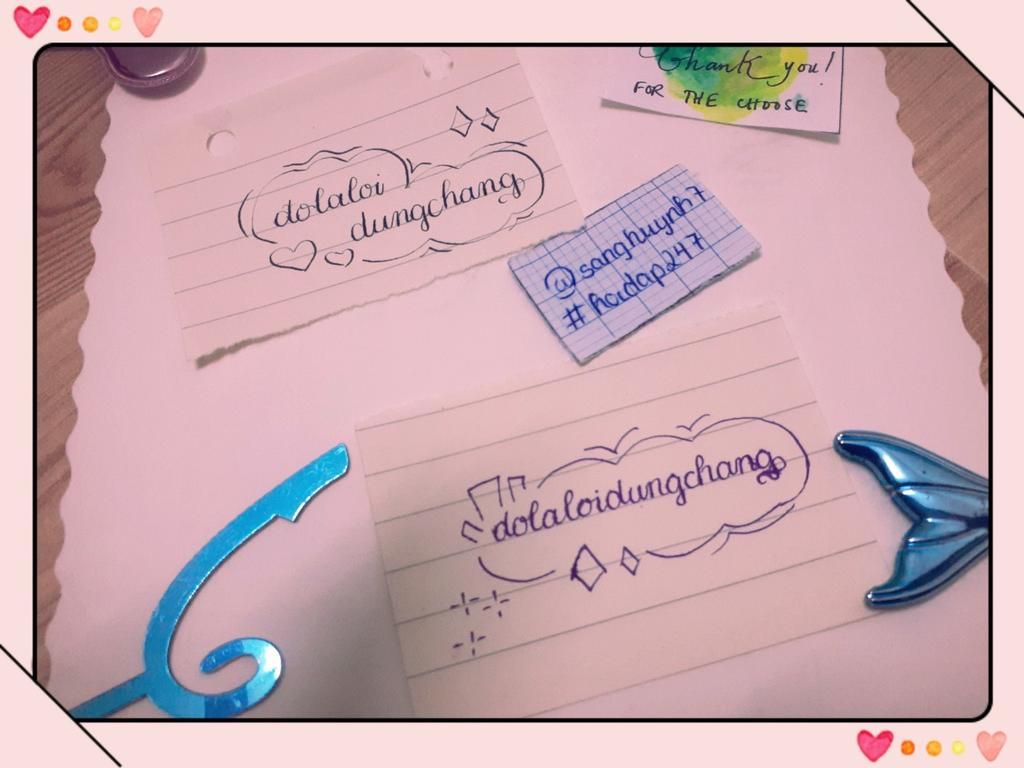 Thank you!
FOR THE CHOOSE
dolaloi
dungchang
@sanghuynh7
#hoidap247
dolaloidungchang